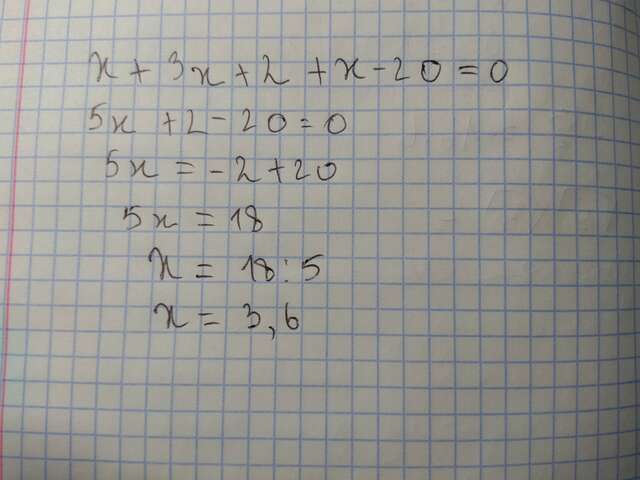 x + 3x + 2 + x - 20 = 0
5x + 2 - 20 = 0
5x = -2 + 20
5x = 18
x = 18 : 5
x = 3,6